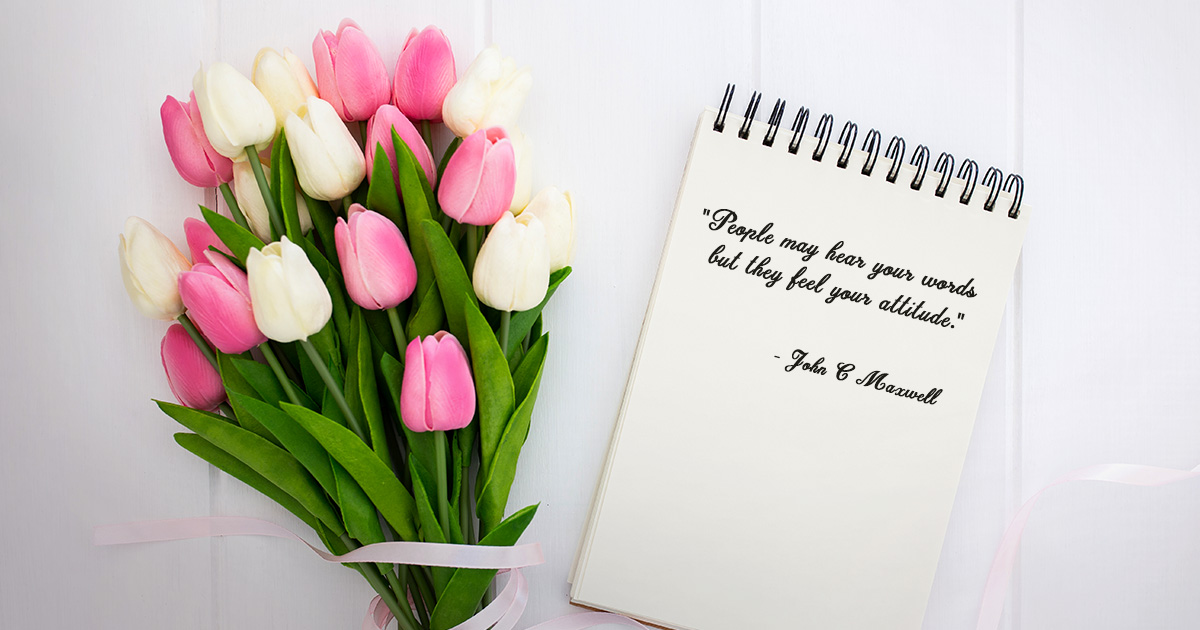 "People may hear your words
but they feel your attitude."
- John C Maxwell